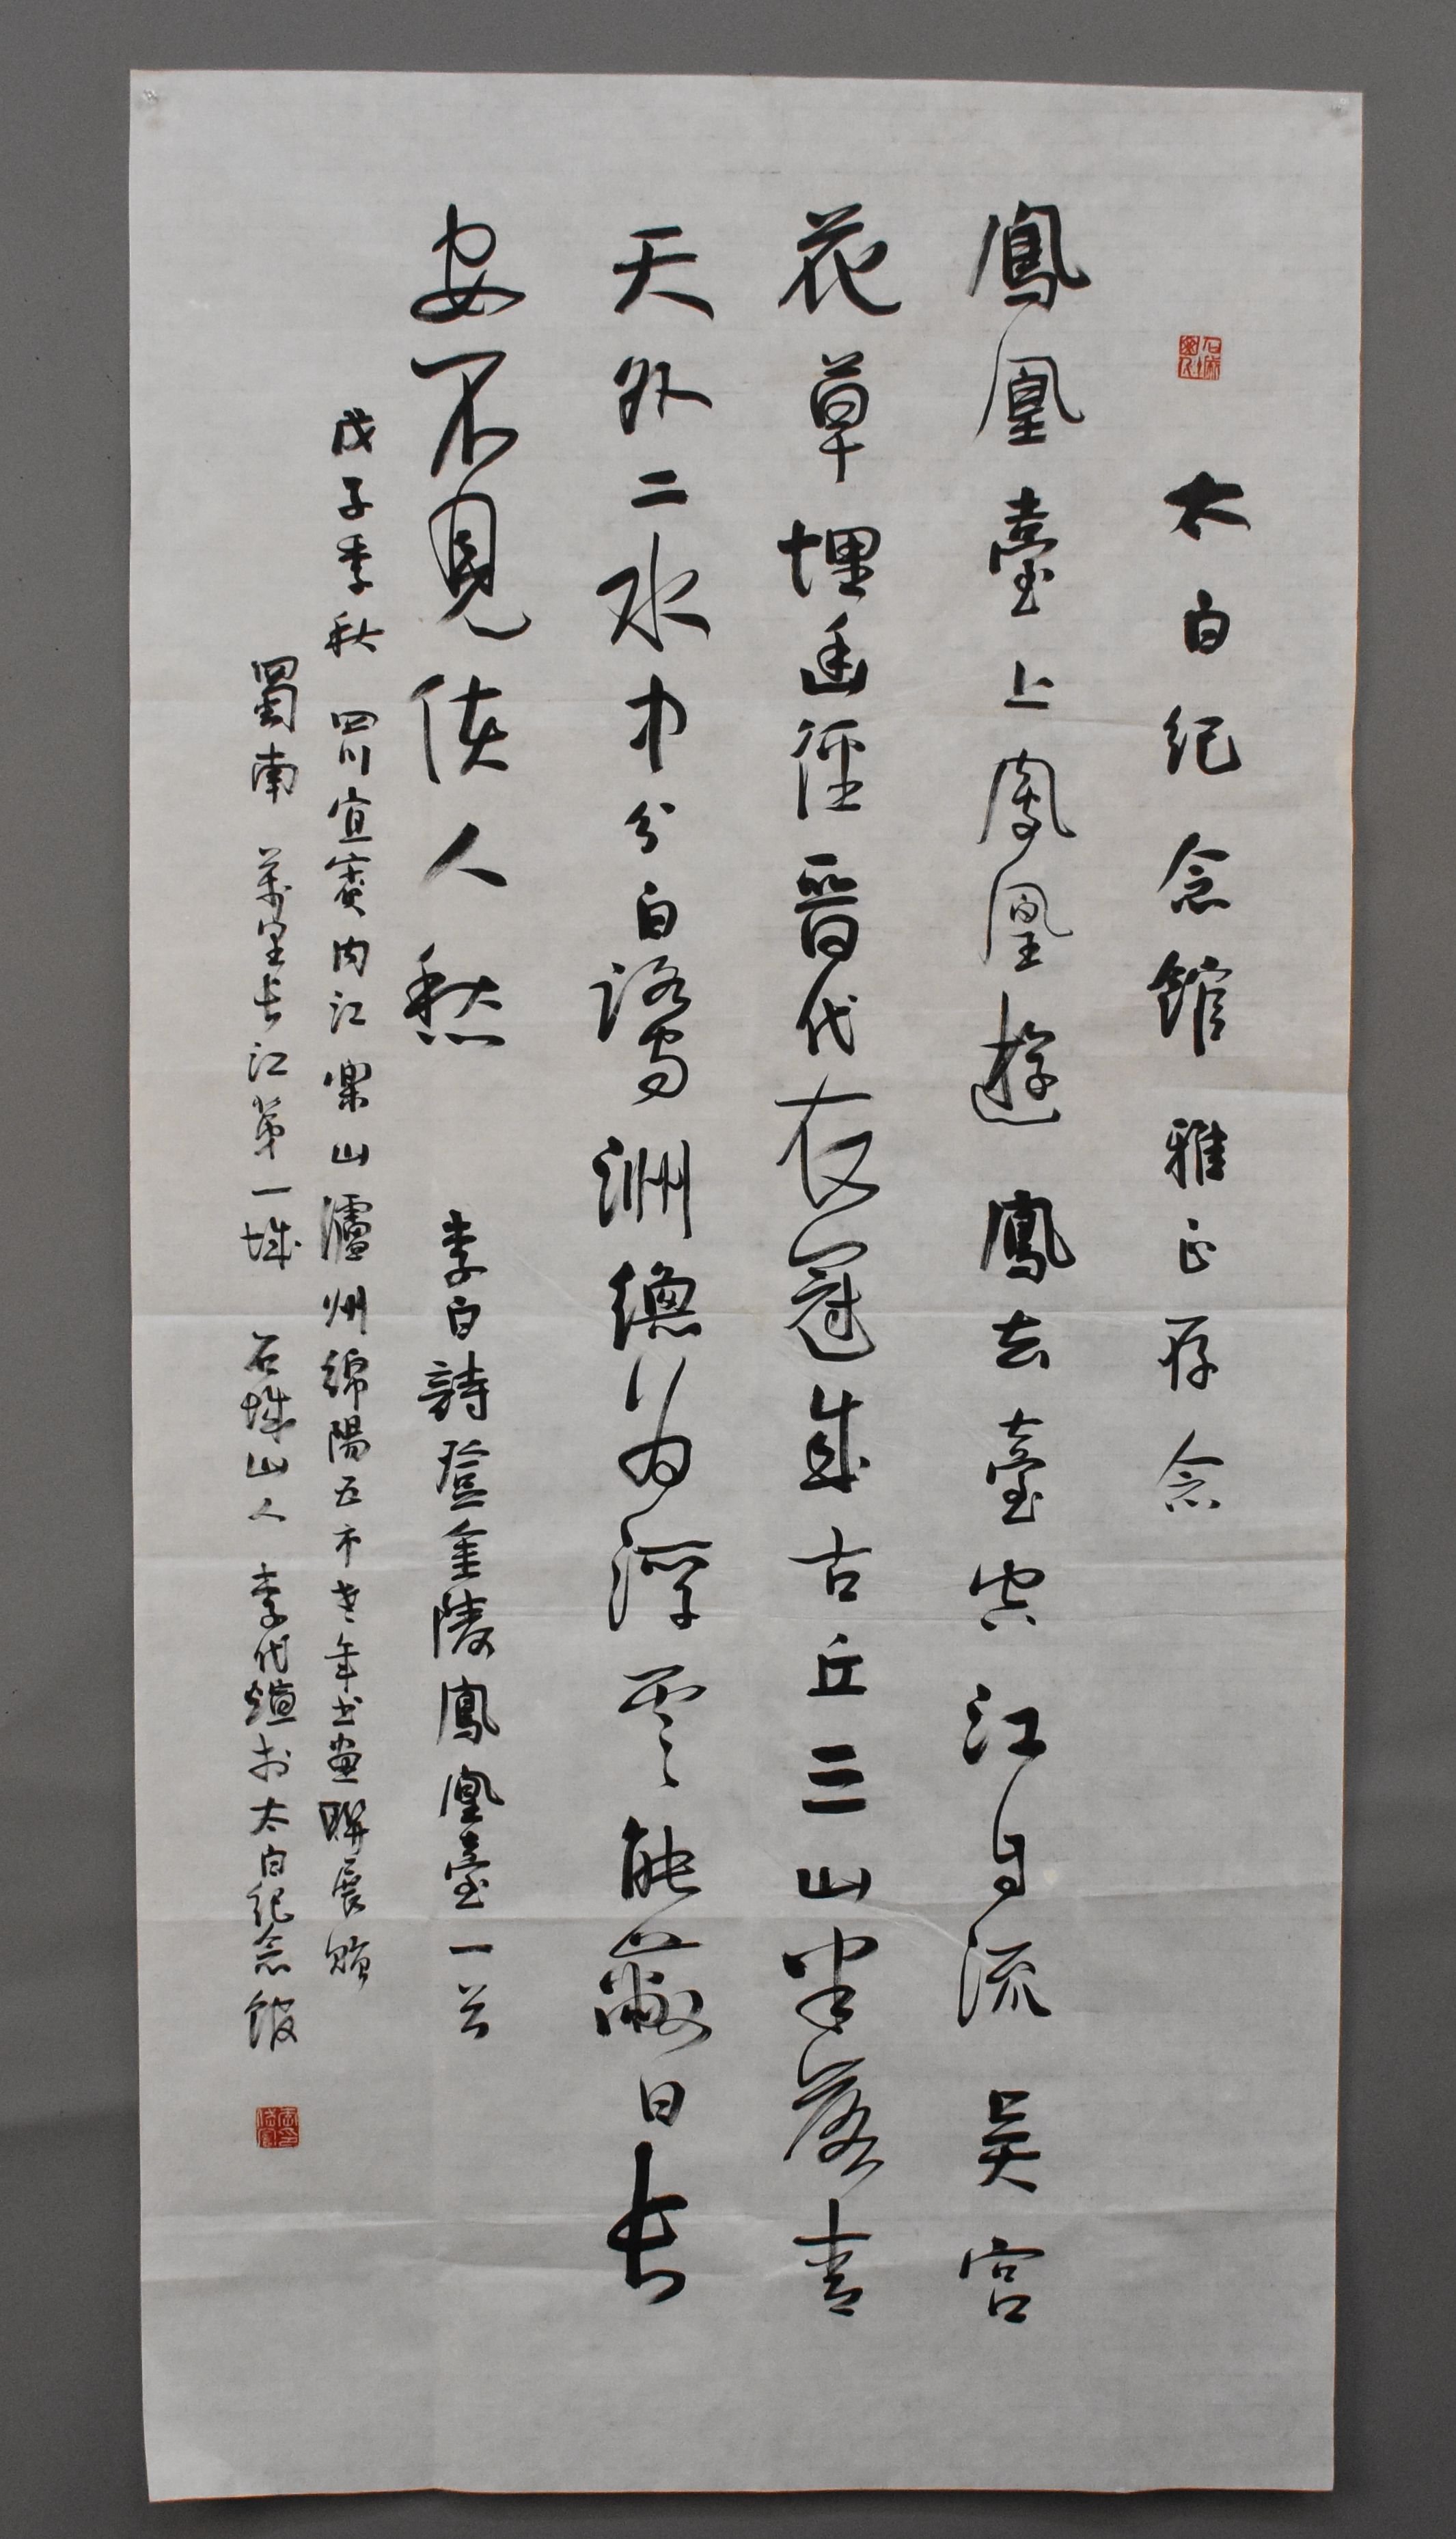 太白纪念馆 雅正存念
鳳凰臺上鳳凰遊 鳳去臺空江自流 吴宫
花草埋幽徑晋代衣冠成古丘三山半落青
天外二水中分白鷺洲總为浮雲能蔽日长
安不見使人愁 李白詩登金陵鳳凰臺一首
戊子季秋 四川宜賓内江樂山瀘州綿陽五市老年书畫聯展赠
蜀南 萬里长江第一城 石城山人 李代煊於太白纪念馆